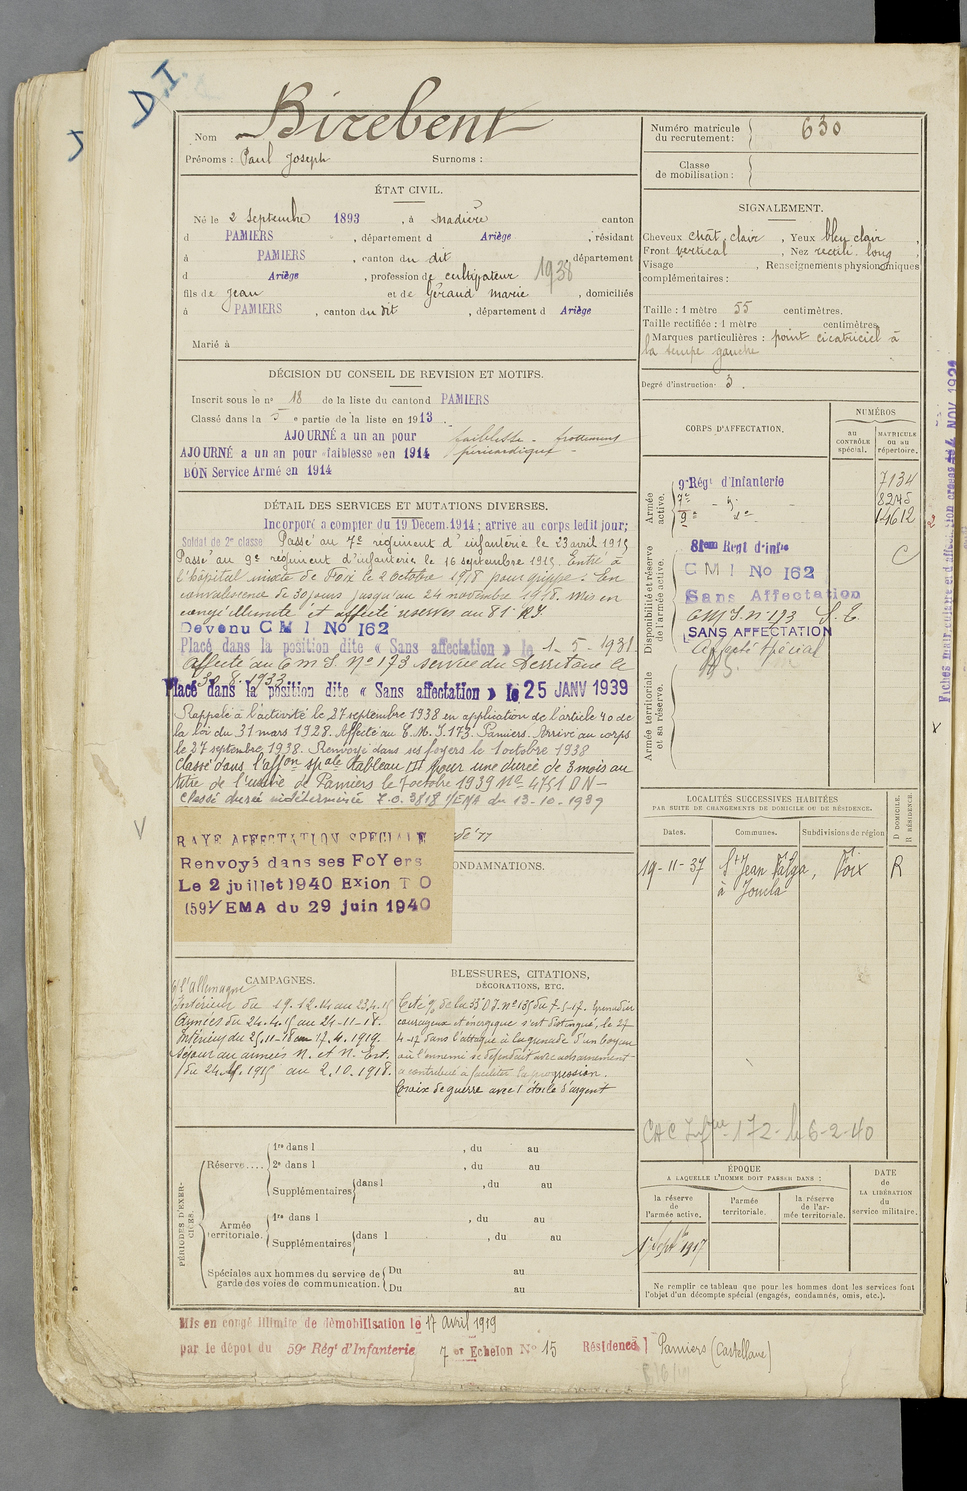 D.I.
Nom Birebent
Prénoms : Paul Joseph Surnoms :
ÉTAT CIVIL.
Né le 2 Septembre 1893, à Madière canton
d PAMIERS, département d Ariège, résidant
à PAMIERS, canton du dit département
d Ariège, profession de cultivateur 1938
fils de Jean et de Géraud Marie, domiciliés
à PAMIERS, canton du dit, département d Ariège
Marié à
DÉCISION DU CONSEIL DE REVISION ET MOTIFS.
Inscrit sous le no 18 de la liste du canton d PAMIERS
Classé dans la 5 e partie de la liste en 1913.
AJOURNÉ a un an pour faiblesse - frottement
AJOURNÉ a un an pour «faiblesse» en 1914 péricardique -
BON Service Armé en 1914
DÉTAIL DES SERVICES ET MUTATIONS DIVERSES.
Incorporé a compter du 19 Décem.1914; arrive au corps ledit jour;
Soldat de 2e classe Passé au 7e régiment d'infanterie le 23 avril 1915
Passé au 9e régiment d'infanterie le 16 septembre 1915. Entré à
l'hôpital mixte de Foix le 2 octobre 1918 pour grippe. En
convalescence de 30 jours jusqu'au 24 novembre 1918. Mis en
congé illimité et affecté réserves au 81e RI
Devenu C M I No 162
Placé dans la position dite « Sans affectation » le 1-5-1931
Affecté au C M I No 173 service du Territoire le
30.8.1933
Placé dans la position dite « Sans affectation » le 25 JANV 1939
Rappelé à l'activité le 27 septembre 1938 en application de l'article 40 de
la loi du 31 mars 1928. Affecté au C.M.I.173. Pamiers. Arrivé au corps
le 27 septembre 1938. Renvoyé dans ses foyers le 1 octobre 1938
Classé dans l'affon spale tableau III pour une durée de 3 mois au
titre de l'usine de Pamiers le 7 octobre 1939 No 4751 DN-
Classé durée indéterminée T.O. 3818 1/EMA du 13-10-1939
RAYE AFFECTATION SPECIALE
Renvoyé dans ses FoYers
Le 2 juillet 1940 Exion T O
159 1/EMA du 29 juin 1940
ONDAMNATIONS.
CAMPAGNES.
c/ l'allemagne
Intérieur du 19.12.14 au 23.4.15
Armées du 24.4.15 au 24-11-18.
Intérieur du 25.11-18 au 17.4.1919.
Séjour au armées N. et N. Est.
du 24 Af. 1915 au 2.10.1918.
BLESSURES, CITATIONS,
DÉCORATIONS, ETC.
Cité o/ de la 33e D.I. no 135 du 7-5-17. Grenadier
courageux et énergique s'est distingué, le 27
4-17 dans l'attaque à la grenade d'un boyau
où l'ennemi se défendait avec acharnement
a contribué à faciliter la progression.
Croix de guerre avec l'étoile d'argent
PÉRIODES D'EXERCICES.
Réserve....
1re dans l , du au
2e dans l , du au
Supplémentaires dans l , du au
Armée territoriale.
1re dans l , du au
Supplémentaires dans l , du au
Spéciales aux hommes du service de garde des voies de communication.
Du au
Du au
Mis en congé illimité de démobilisation le 17 avril 1919
par le dépot du 59e Régt d'Infanterie 7 er Echelon No 15 Résidence Pamiers (Castellane)
Numéro matricule du recrutement: 630
Classe de mobilisation:
SIGNALEMENT.
Cheveux chât. clair, Yeux bleu clair,
Front vertical, Nez rectili. long,
Visage , Renseignements physionomiques
complémentaires :
Taille : 1 mètre 55 centimètres.
Taille rectifiée : 1 mètre centimètres.
Marques particulières : point cicatriciel à
la tempe gauche
Degré d'instruction: 3.
CORPS D'AFFECTATION.
NUMÉROS
au CONTRÔLE spécial.
MATRICULE ou au répertoire.
Armée active.
9e Régt d'Infanterie 7134
7e - d° - 8245
9e d° 14612
Disponibilité et réserve de l'armée active.
81eme Regt d'infie C
C M I No 162
Sans Affectation
CMI n° 173 S.E.
SANS AFFECTATION
Affecté Spécial
Armée territoriale et sa réserve.
LOCALITÉS SUCCESSIVES HABITÉES
PAR SUITE DE CHANGEMENTS DE DOMICILE OU DE RÉSIDENCE.
Dates. Communes. Subdivisions de région D DOMICILE. R RÉSIDENCE.
19-11-37 St Jean Falga, Foix R
à Joucla
CAC 172 - le 6-2-40
ÉPOQUE
A LAQUELLE L'HOMME DOIT PASSER DANS :
la réserve de l'armée active.
l'armée territoriale.
la réserve de l'armée territoriale.
DATE de LA LIBÉRATION du service militaire.
1er Septbre 1917
Ne remplir ce tableau que pour les hommes dont les services font
l'objet d'un décompte spécial (engagés, condamnés, omis, etc.).